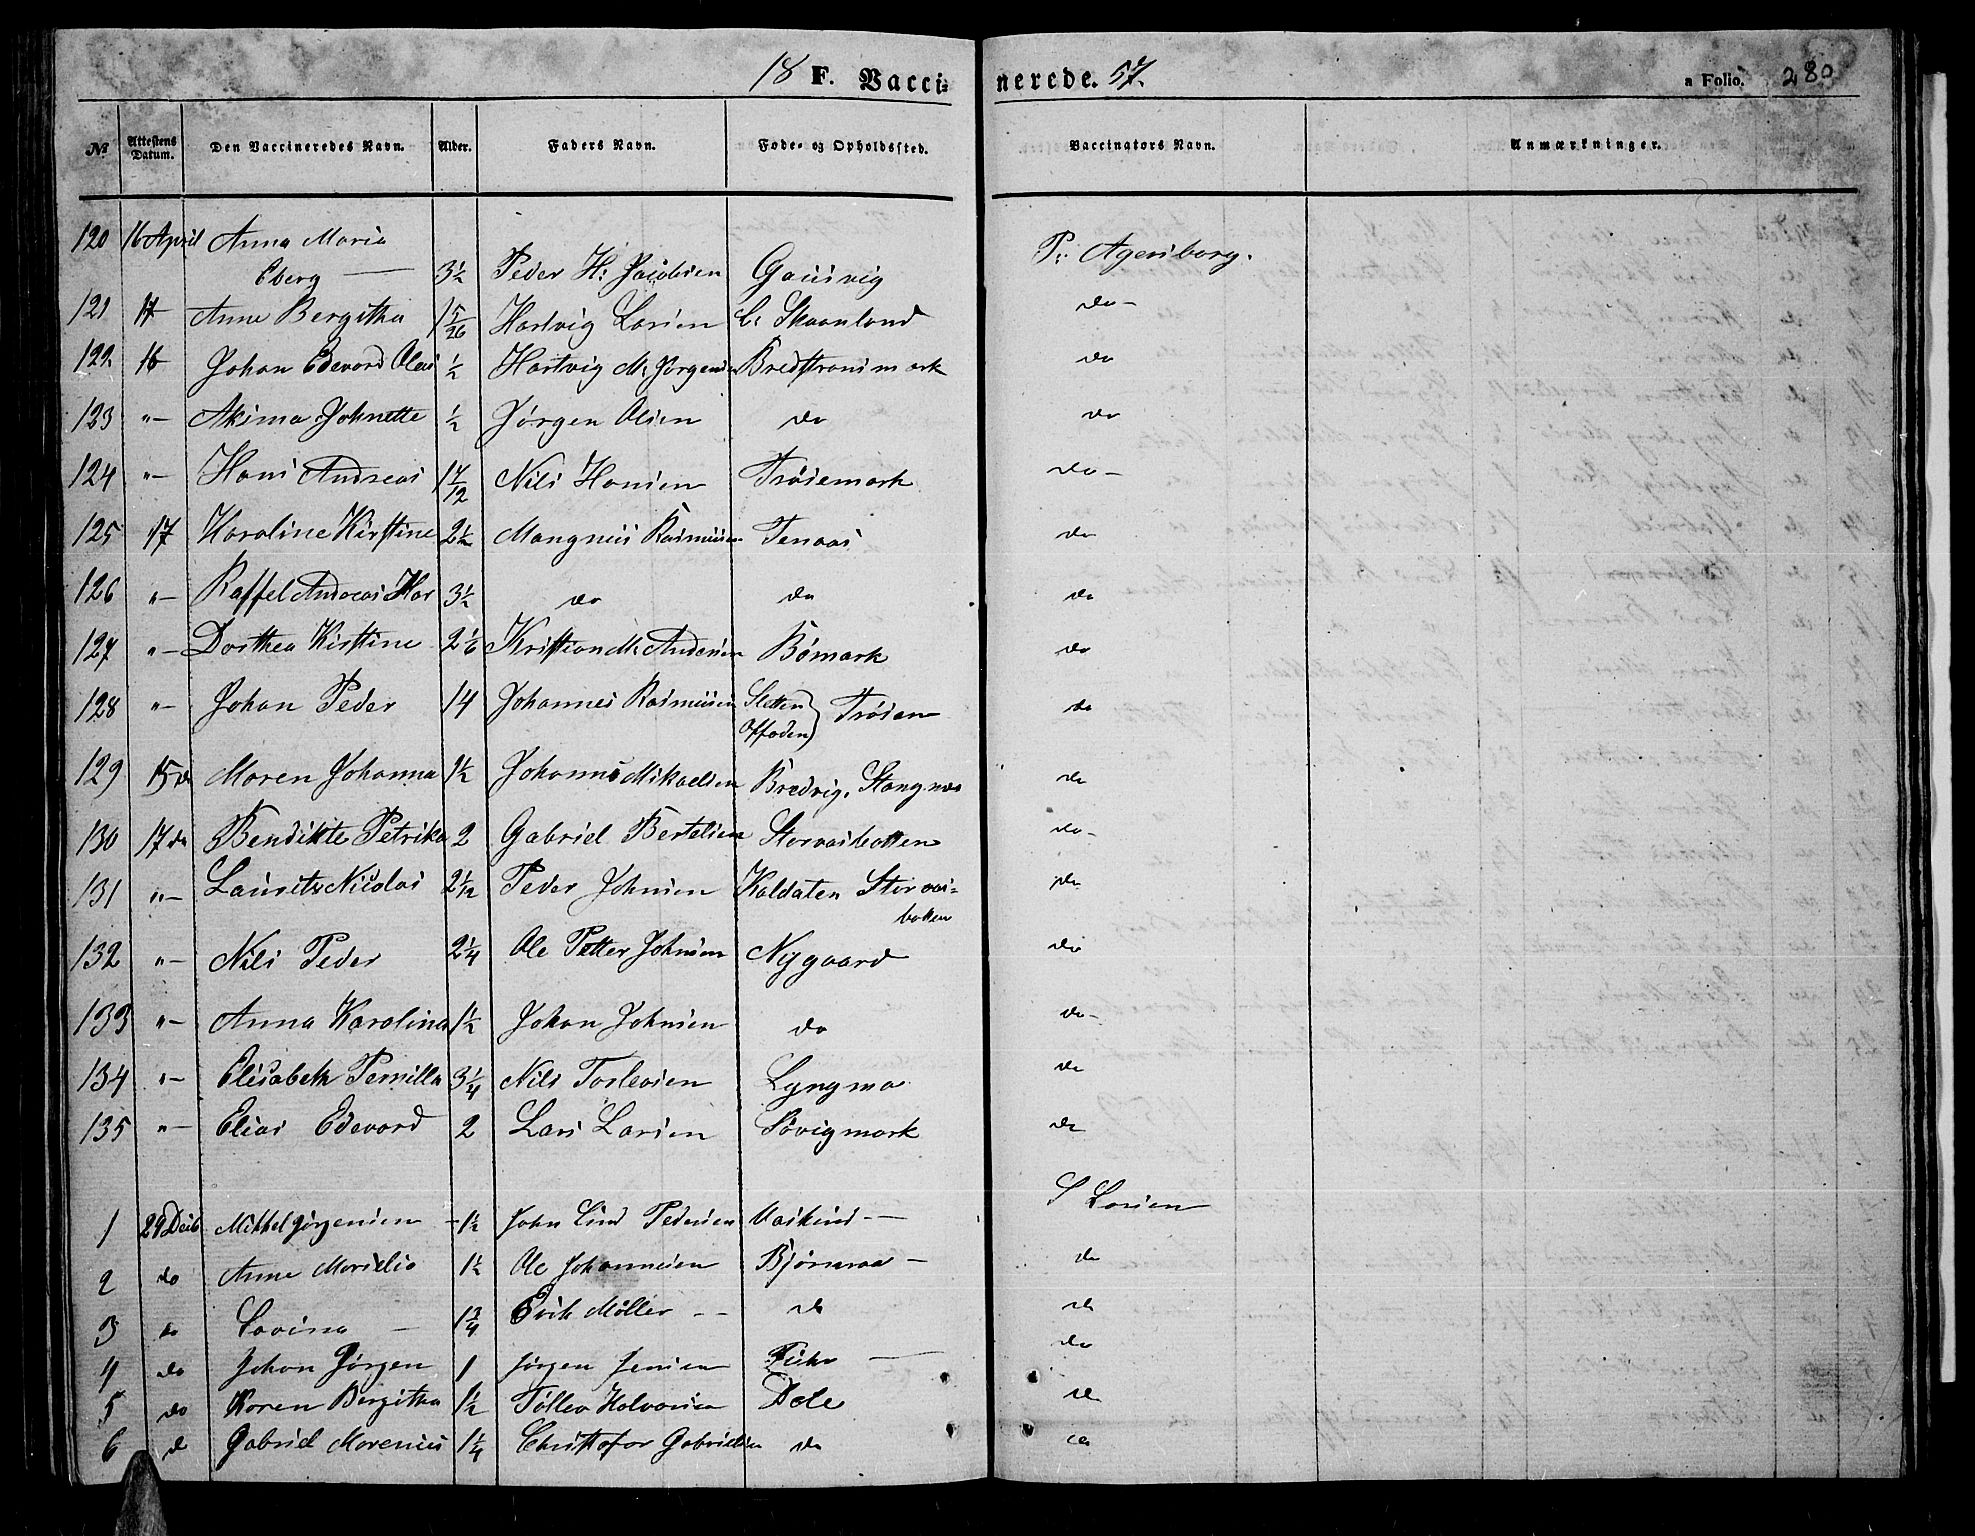 18 F. Vacci-nerede. 57. a Folio. 280
№ Attestens Datum. Den Vaccineredes Navn. Alder. Faders Navn. Føde- og Opholdssted. Vaccinators Navn. Anmærkninger.
120 16 April Anna Maria
Eberg — 3½ Peder H: Jacobsen Gausvig P: Agersborg.
121 17 Anne Bergitha 15/26 Hartvig Larsen L: Skaanland do -
122 16 Johan Edevard Olai ½ Hartvig M: Jørgensen Bredstrandmark do
123 "- Akima Johnette ½ Jørgen Olsen do do
124 "- Hans Andreas 17/12 Nils Hansen Trøsemark do -
125 17 Karoline Kirstine 2½ Mangnus Rasmusen Tenaas do
126 "- Raffel Andreas Kor 3½ do do do
127 "- Dorthea Kirstine 2 1/6 Kristian M: Andersen Bømark do
128 "- Johan Peder 14 Johannes Rasmusen Sletten Offoden) Trøsen do
129 15 do Maren Johanna 1½ Johannes Mikaelsen Bredvig, Stangnes do
130 17 do Bendikte Petrika 2 Gabriel Bertelsen Storvasbotten do -
131 "- Laurits Nicolai 2 1/12 Peder Johnsen Kaldaten Storvas-
botten do
132 "- Nils Peder 2¼ Ole Petter Johnsen Nygaard do
133 "- Anna Karolina 1½ Johan Johnsen do do -
134 "- Elisabeth Pernilla 3¼ Nils Torleosen Lyngmo do
135 "- Elias Edevard 2 Lars Larsen Søvigmark do
1 29 Decb Mikkel Jørgensen - 1½ John Lind Pedersen Vaskind — S Larsen
2 do Anne Mordelia 1½ Ole Johannesen Bjørnraa — do
3 do Lovina — 1¾ Erik Møller — do do
4 do Johan Jørgen 1 Jørgen Jensen — do
5 do Karen Bergitha 1½ Tollev Halvorsen Dale do
6 d Gabriel Morenius 1¼ Christofor Gabrielsen do do